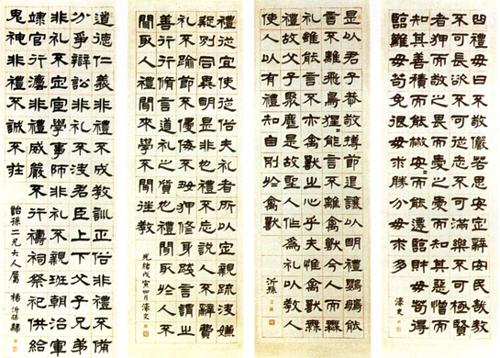 曲禮曰毋不敬儼若思安定辭安民哉敖
不可長欲不可從志不可滿樂不可極賢
者狎而敬之畏而愛之愛而知其惡憎而
知其善積而能散安安而能遷臨財毋苟得
臨難毋苟免很毋求勝分毋求多
濠叟
是以君子恭敬撙節退讓以明禮鸚鵡能
言不離飛鳥猩猩能言不離禽獸今人而無
礼雖能言不亦禽獸之心乎夫惟禽獸無
禮故父子聚麀是故聖人作為礼以教人
使人以有禮知自別於禽獸
沂孫
禮從宜使從俗夫礼者所以定親疏決嫌
疑別同異明是非也禮不妄說人不辭費
礼不踰節不侵侮不好狎修身踐言謂之
善行行修言道礼之質也禮聞取於人不
聞取人禮聞來學不聞往教
光緒戊寅四月濠叟
道德仁義非禮不成教訓正俗非禮不備
分爭辯訟非礼不決君臣上下父子兄弟
非礼不定宦學事師非礼不親班朝治軍
涖官行灋非禮威嚴不行禱祠祭祀供給
鬼神非禮不誠不莊
詒孫二兄大人屬 楊沂孫隸